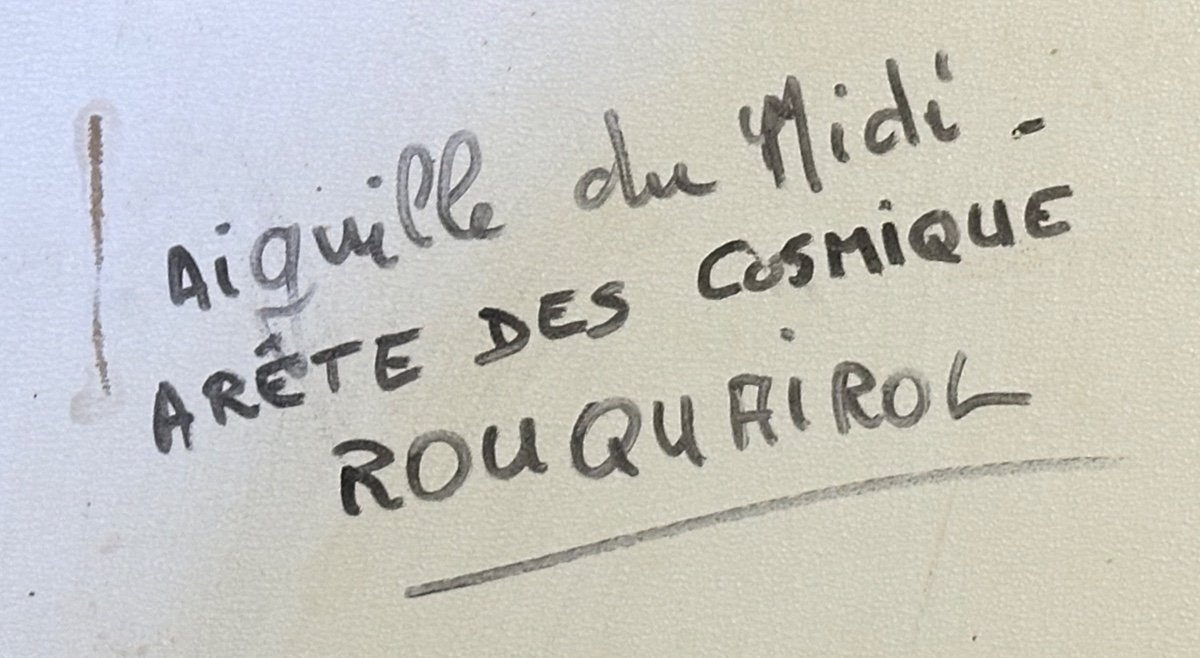 Aiguille du Midi -
ARÊTE DES COSMIQUE
ROUQUAIROL